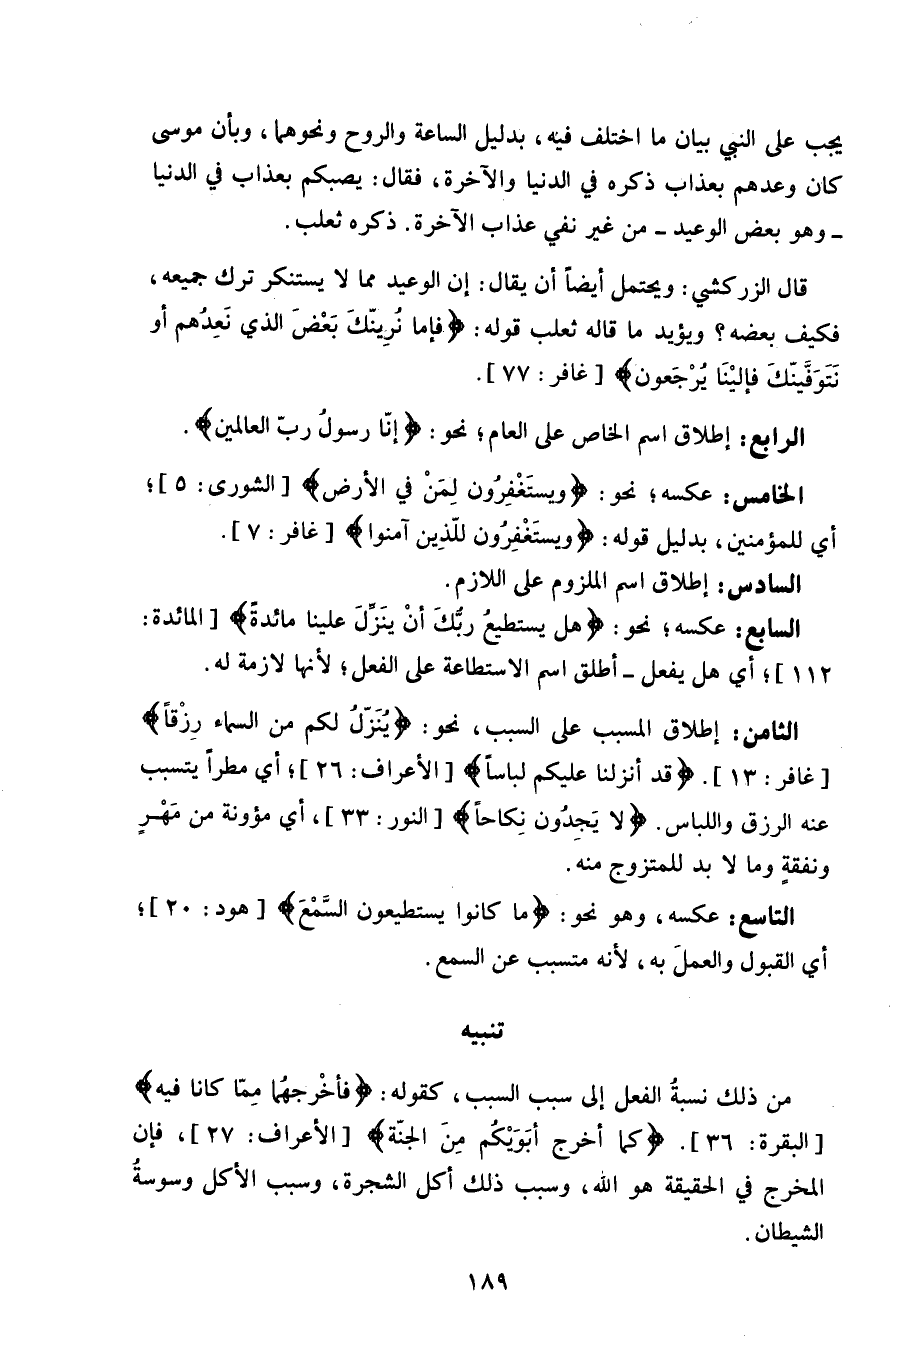 يجب على النبي بيان ما اختلف فيه، بدليل الساعة والروح ونحوهما، وبأن موسى
كان وعدهم بعذاب ذكره في الدنيا والآخرة، فقال: يصبكم بعذاب في الدنيا
ـ وهو بعض الوعيد ـ من غير نفي عذاب الآخرة. ذكره ثعلب.
قال الزركشي: ويحتمل أيضاً أن يقال: إن الوعيد مما لا يستنكر ترك جميعه،
فكيف بعضه؟ ويؤيد ما قاله ثعلب قوله: ﴿فإما نُرِينّكَ بَعْضَ الذي نَعِدُهم أو
نَتَوَفَّيَنّكَ فإليْنَا يُرْجَعون﴾ [غافر: ٧٧].
الرابع: إطلاق اسم الخاص على العام؛ نحو: ﴿إنّا رسولُ ربّ العالمين﴾.
الخامس: عكسه؛ نحو: ﴿ويستَغْفِرُون لِمَنْ في الأرض﴾ [الشورى: ٥]؛
أي للمؤمنين، بدليل قوله: ﴿ويستَغْفِرُون للّذِين آمنوا﴾ [غافر: ٧].
السادس: إطلاق اسم الملزوم على اللازم.
السابع: عكسه؛ نحو: ﴿هل يستطيعُ ربُّكَ أنْ ينَزِّلَ علينا مائدةً﴾ [المائدة:
١١٢]؛ أي هل يفعل ـ أطلق اسم الاستطاعة على الفعل؛ لأنها لازمة له.
الثامن: إطلاق المسبب على السبب، نحو: ﴿يُنَزّلُ لكم من السماء رِزْقاً﴾
[غافر: ١٣]. ﴿قد أنزلنا عليكم لباساً﴾ [الأعراف: ٢٦]؛ أي مطراً يتسبب
عنه الرزق واللباس. ﴿لا يَجِدُون نِكاحاً﴾ [النور: ٣٣]، أي مؤونة من مَهْرٍ
ونفقةٍ وما لا بد للمتزوج منه.
التاسع: عكسه، وهو نحو: ﴿ما كانوا يستطيعون السَّمْعَ﴾ [هود: ٢٠]؛
أي القبول والعملَ به، لأنه متسبب عن السمع.
تنبيه
من ذلك نسبةُ الفعل إلى سبب السبب، كقوله: ﴿فأخْرجهُما مِمّا كانا فيه﴾
[البقرة: ٣٦]. ﴿كما أخرج أبَوَيْكُم مِنَ الجنّة﴾ [الأعراف: ٢٧]، فإن
المخرج في الحقيقة هو الله، وسبب ذلك أكل الشجرة، وسبب الأكل وسوسةُ
الشيطان.
١٨٩